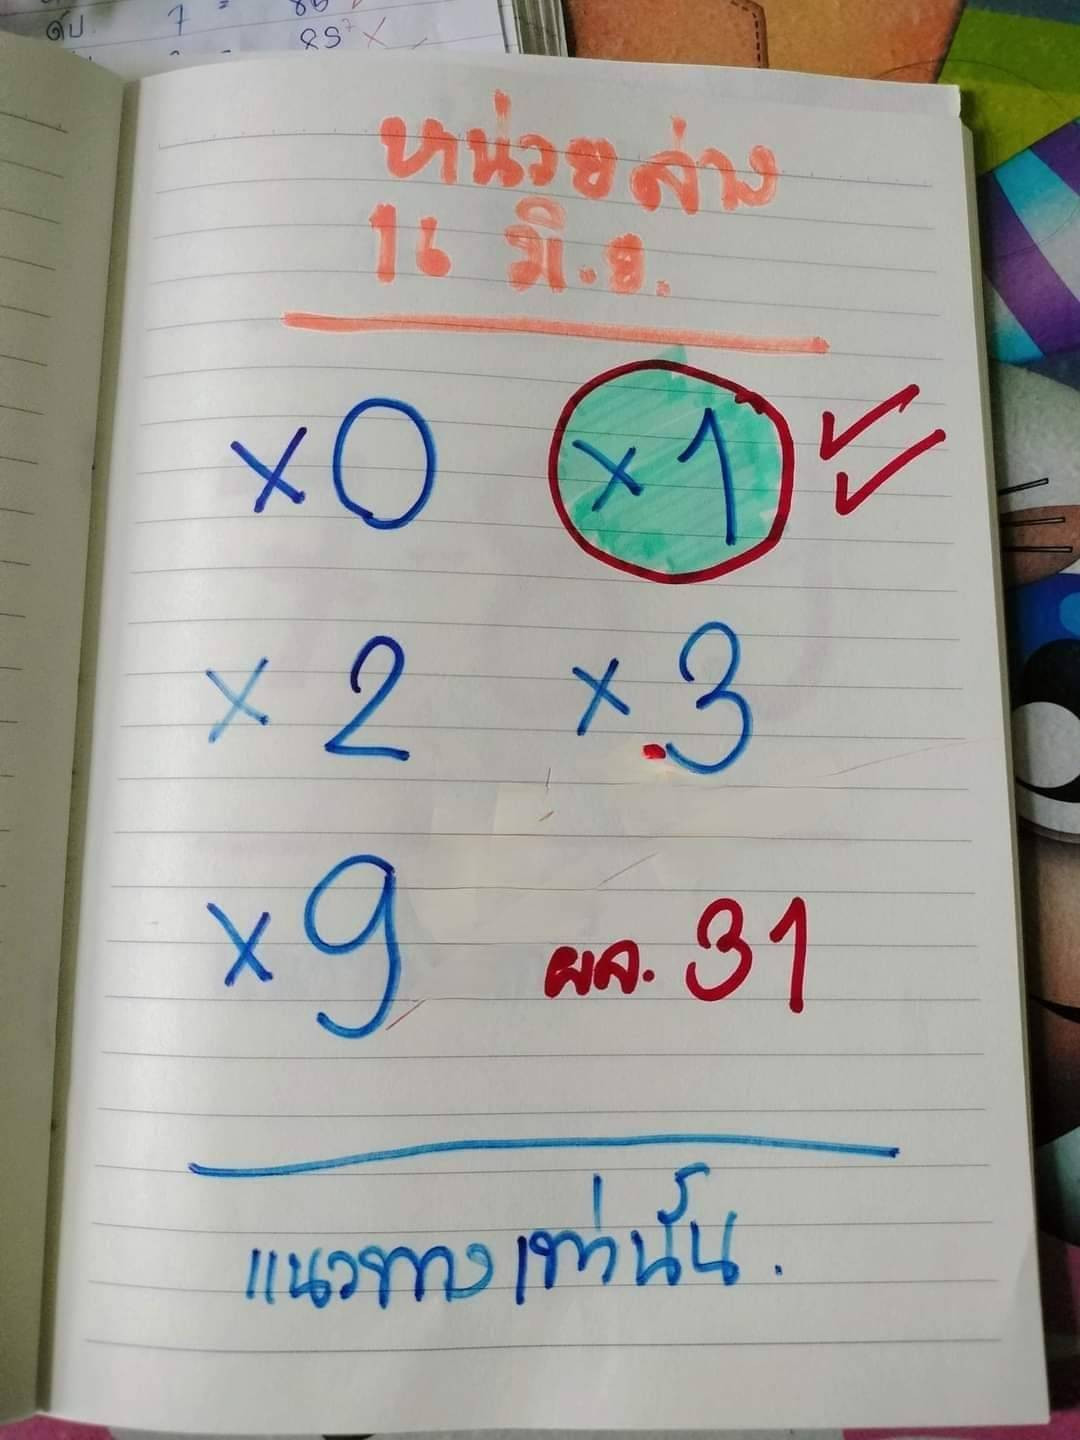 ดับ 7 = 86
89
หน่วยล่าง
16 มิ.ย.
×0 ×1
×2 ×3
×9 ผล. 31
แนวทางเท่านั้น.